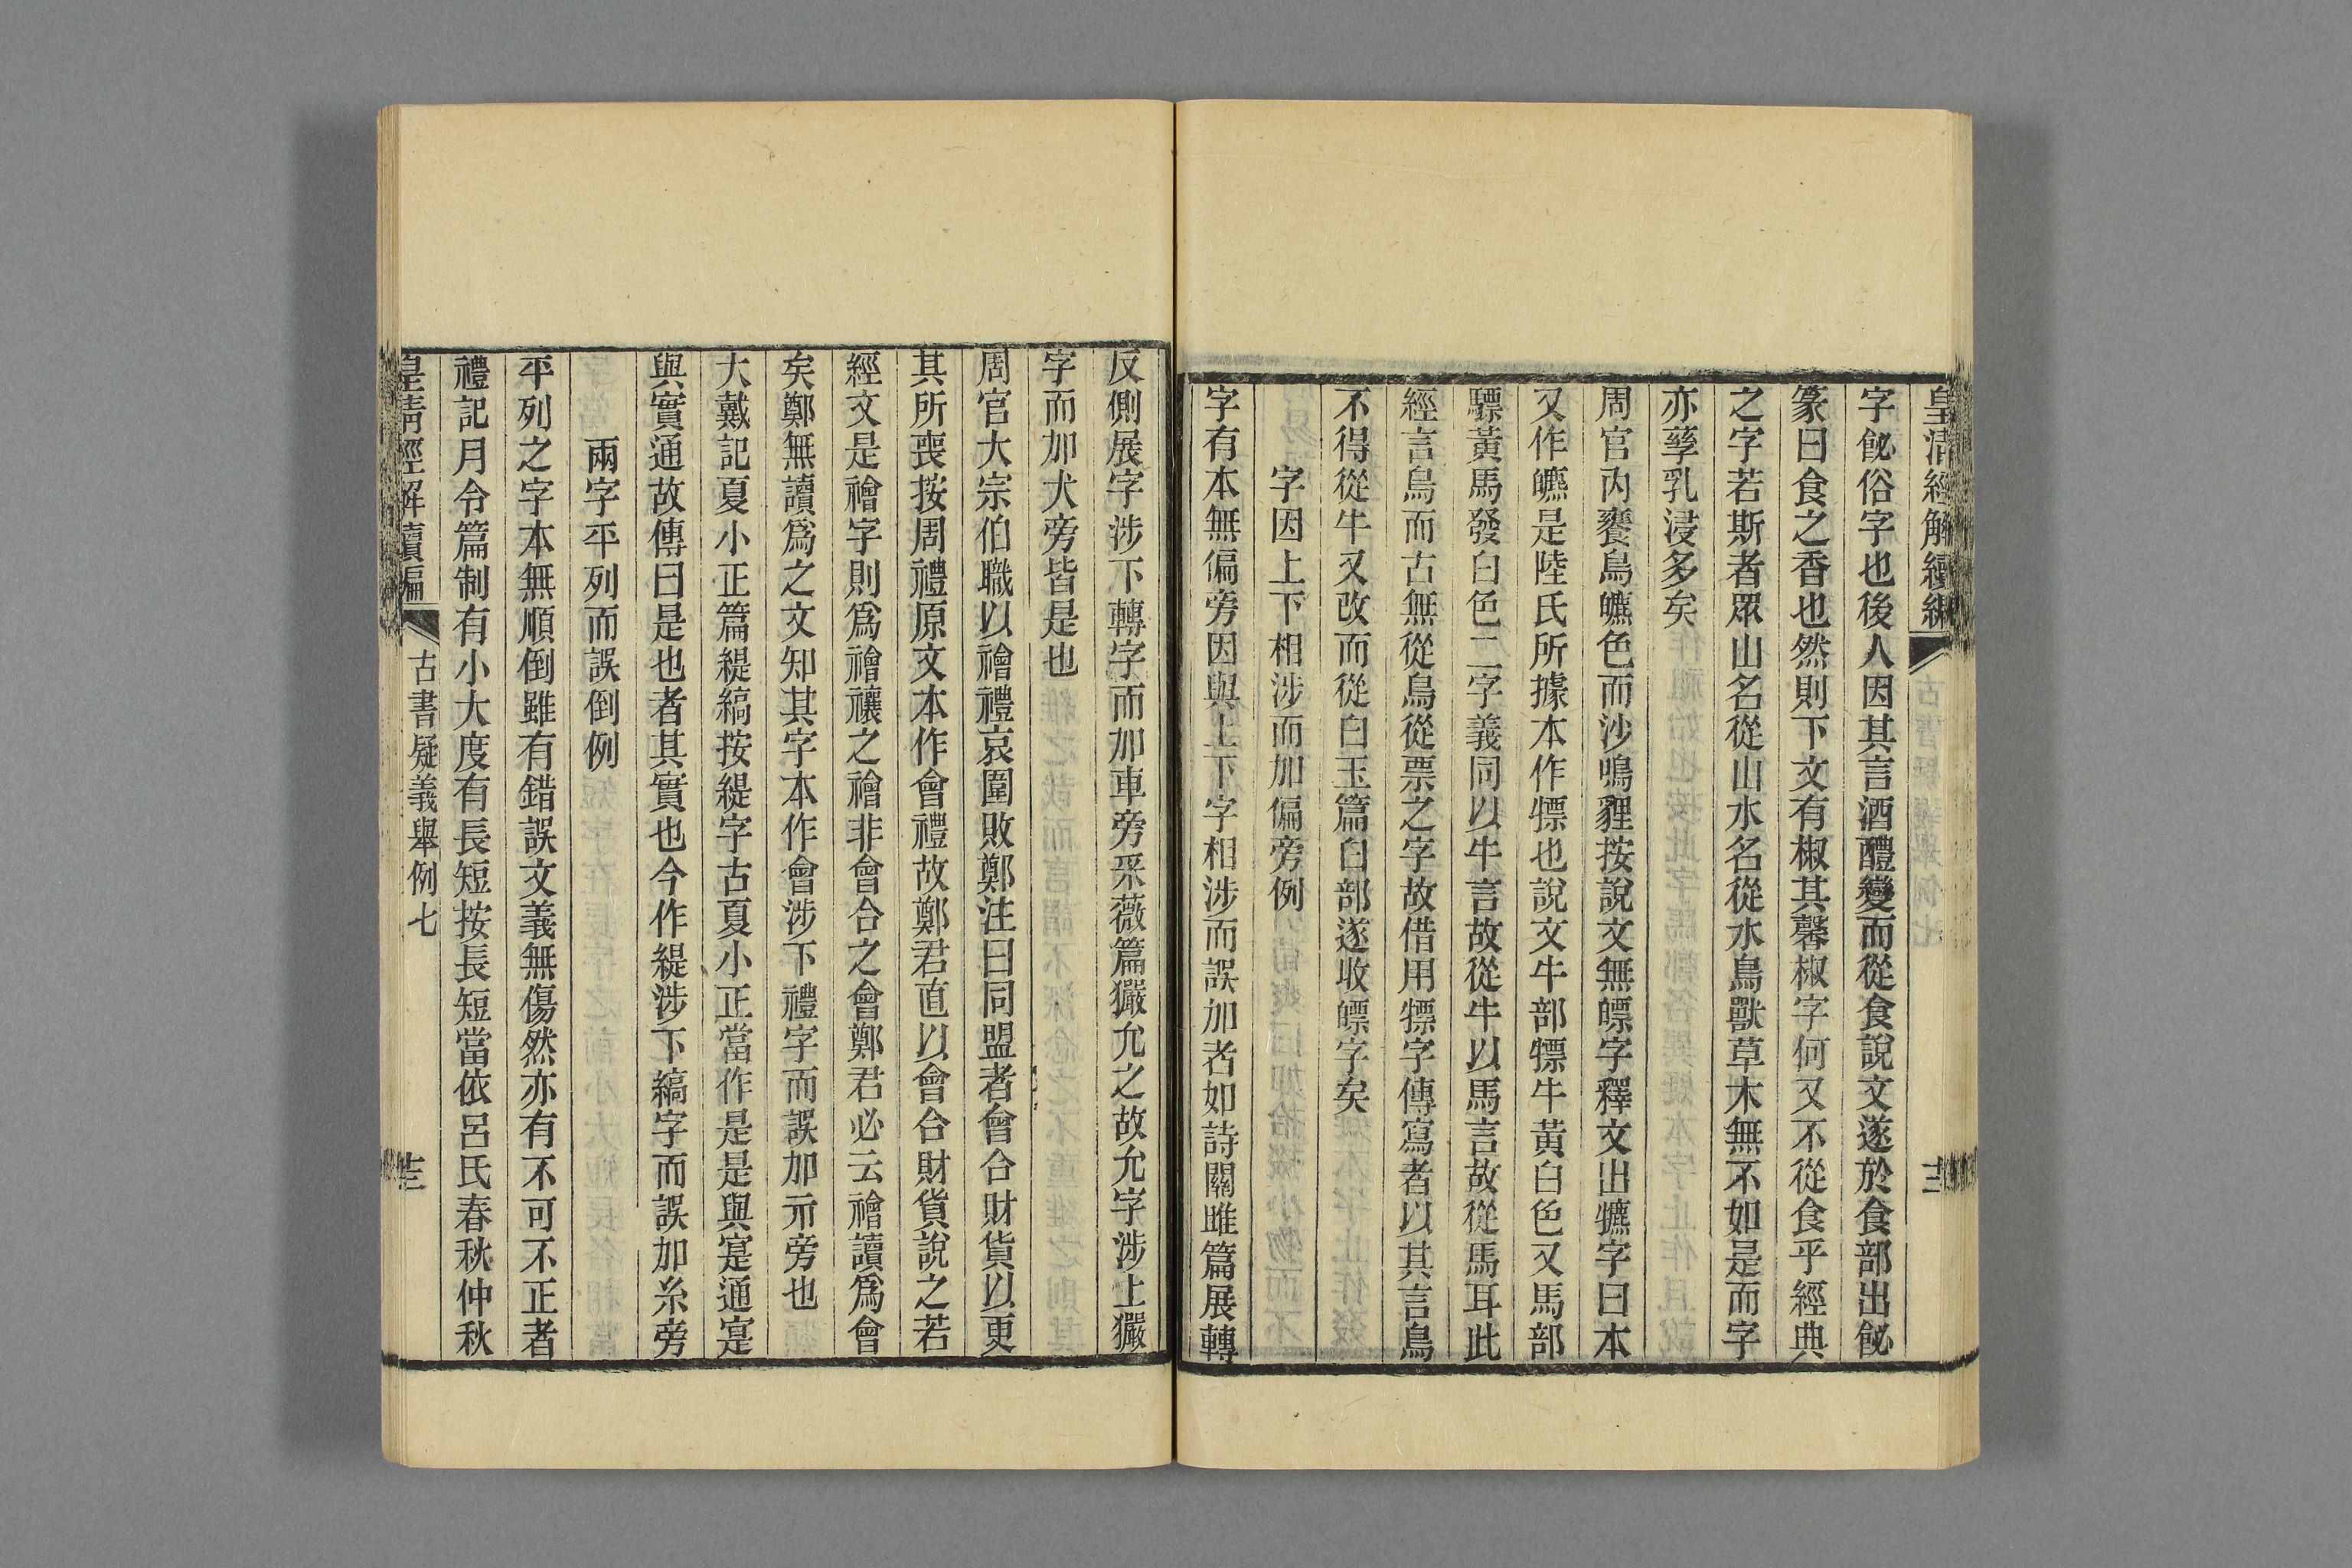 皇清經解續編
字䬛俗字也後人因其言酒醴變而從食說文遂於食部出䬛
篆曰食之香也然則下文有椒其馨椒字何又不從食乎經典
之字若斯者眾山名從山水名從水鳥獸草木無不如是而字
亦孳乳浸多矣
周官內饔鳥皫色而沙鳴貍按說文無皫字釋文出皫字曰本
又作皫是陸氏所據本作犥也說文牛部犥牛黃白色又馬部
驃黃馬發白色二字義同以牛言故從牛以馬言故從馬耳此
經言鳥而古無從鳥從票之字故借用犥字傳寫者以其言鳥
不得從牛又改而從白玉篇白部遂收皫字矣
字因上下相涉而加偏旁例
字有本無偏旁因與上下字相涉而誤加者如詩關雎篇展轉
反側展字涉下轉字而加車旁采薇篇玁允之故允字涉上玁
字而加犬旁皆是也
周官大宗伯職以禬禮哀圍敗鄭注曰同盟者會合財貨以更
其所喪按周禮原文本作會禮故鄭君直以會合財貨說之若
經文是禬字則爲禬禳之禬非會合之會鄭君必云禬讀爲會
矣鄭無讀爲之文知其字本作會涉下禮字而誤加示旁也
大戴記夏小正篇緹縞按緹字古夏小正當作是是與寔通寔
與實通故傳曰是也者其實也今作緹涉下縞字而誤加糸旁
兩字平列而誤倒例
平列之字本無順倒雖有錯誤文義無傷然亦有不可不正者
禮記月令篇制有小大度有長短按長短當依呂氏春秋仲秋
皇清經解續編
古書疑義舉例七
十三